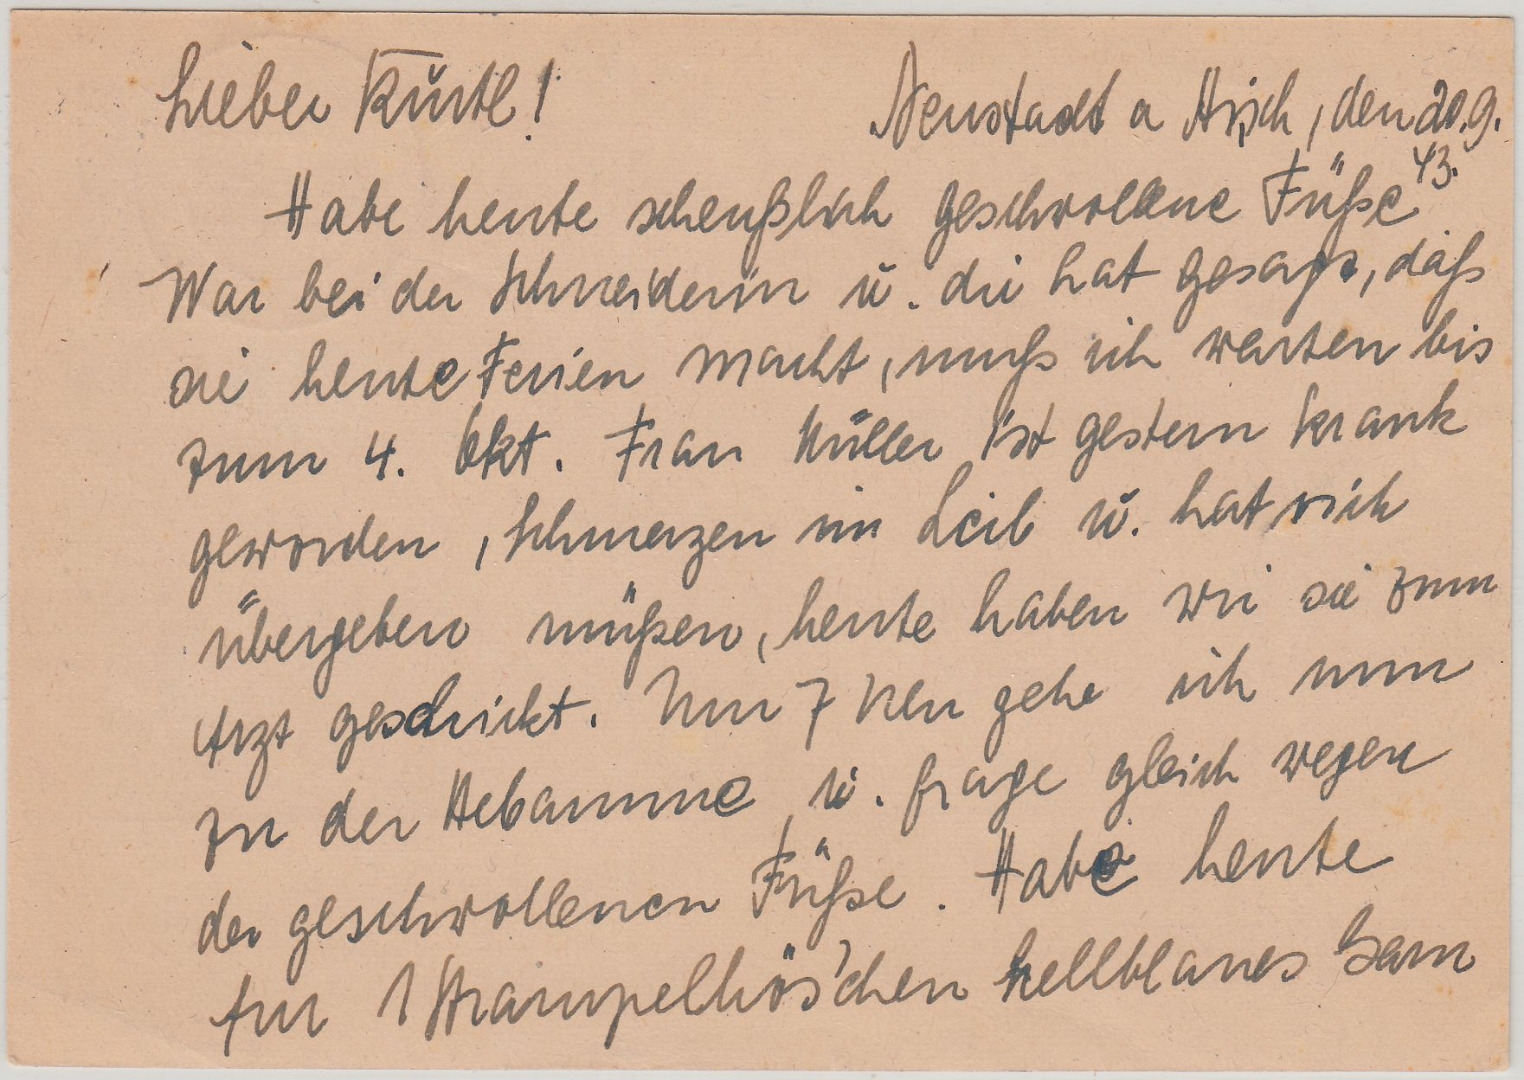 Lieber Kurtl!
Neustadt a Aisch, den 20.9.
43.
Habe heute scheußlich geschwollene Füße
War bei der Schneiderin u. die hat gesagt, daß
sie heute Ferien macht, muß ich warten bis
zum 4. Okt. Frau Müller ist gestern krank
geworden, Schmerzen im Leib u. hat sich
übergeben müßen, heute haben wir sie zum
Arzt geschickt. Um 7 Uhr gehe ich nun
zu der Hebamme u. frage gleich wegen
der geschwollenen Füße. Habe heute
für 1 Strampelhös'chen hellblaues Garn